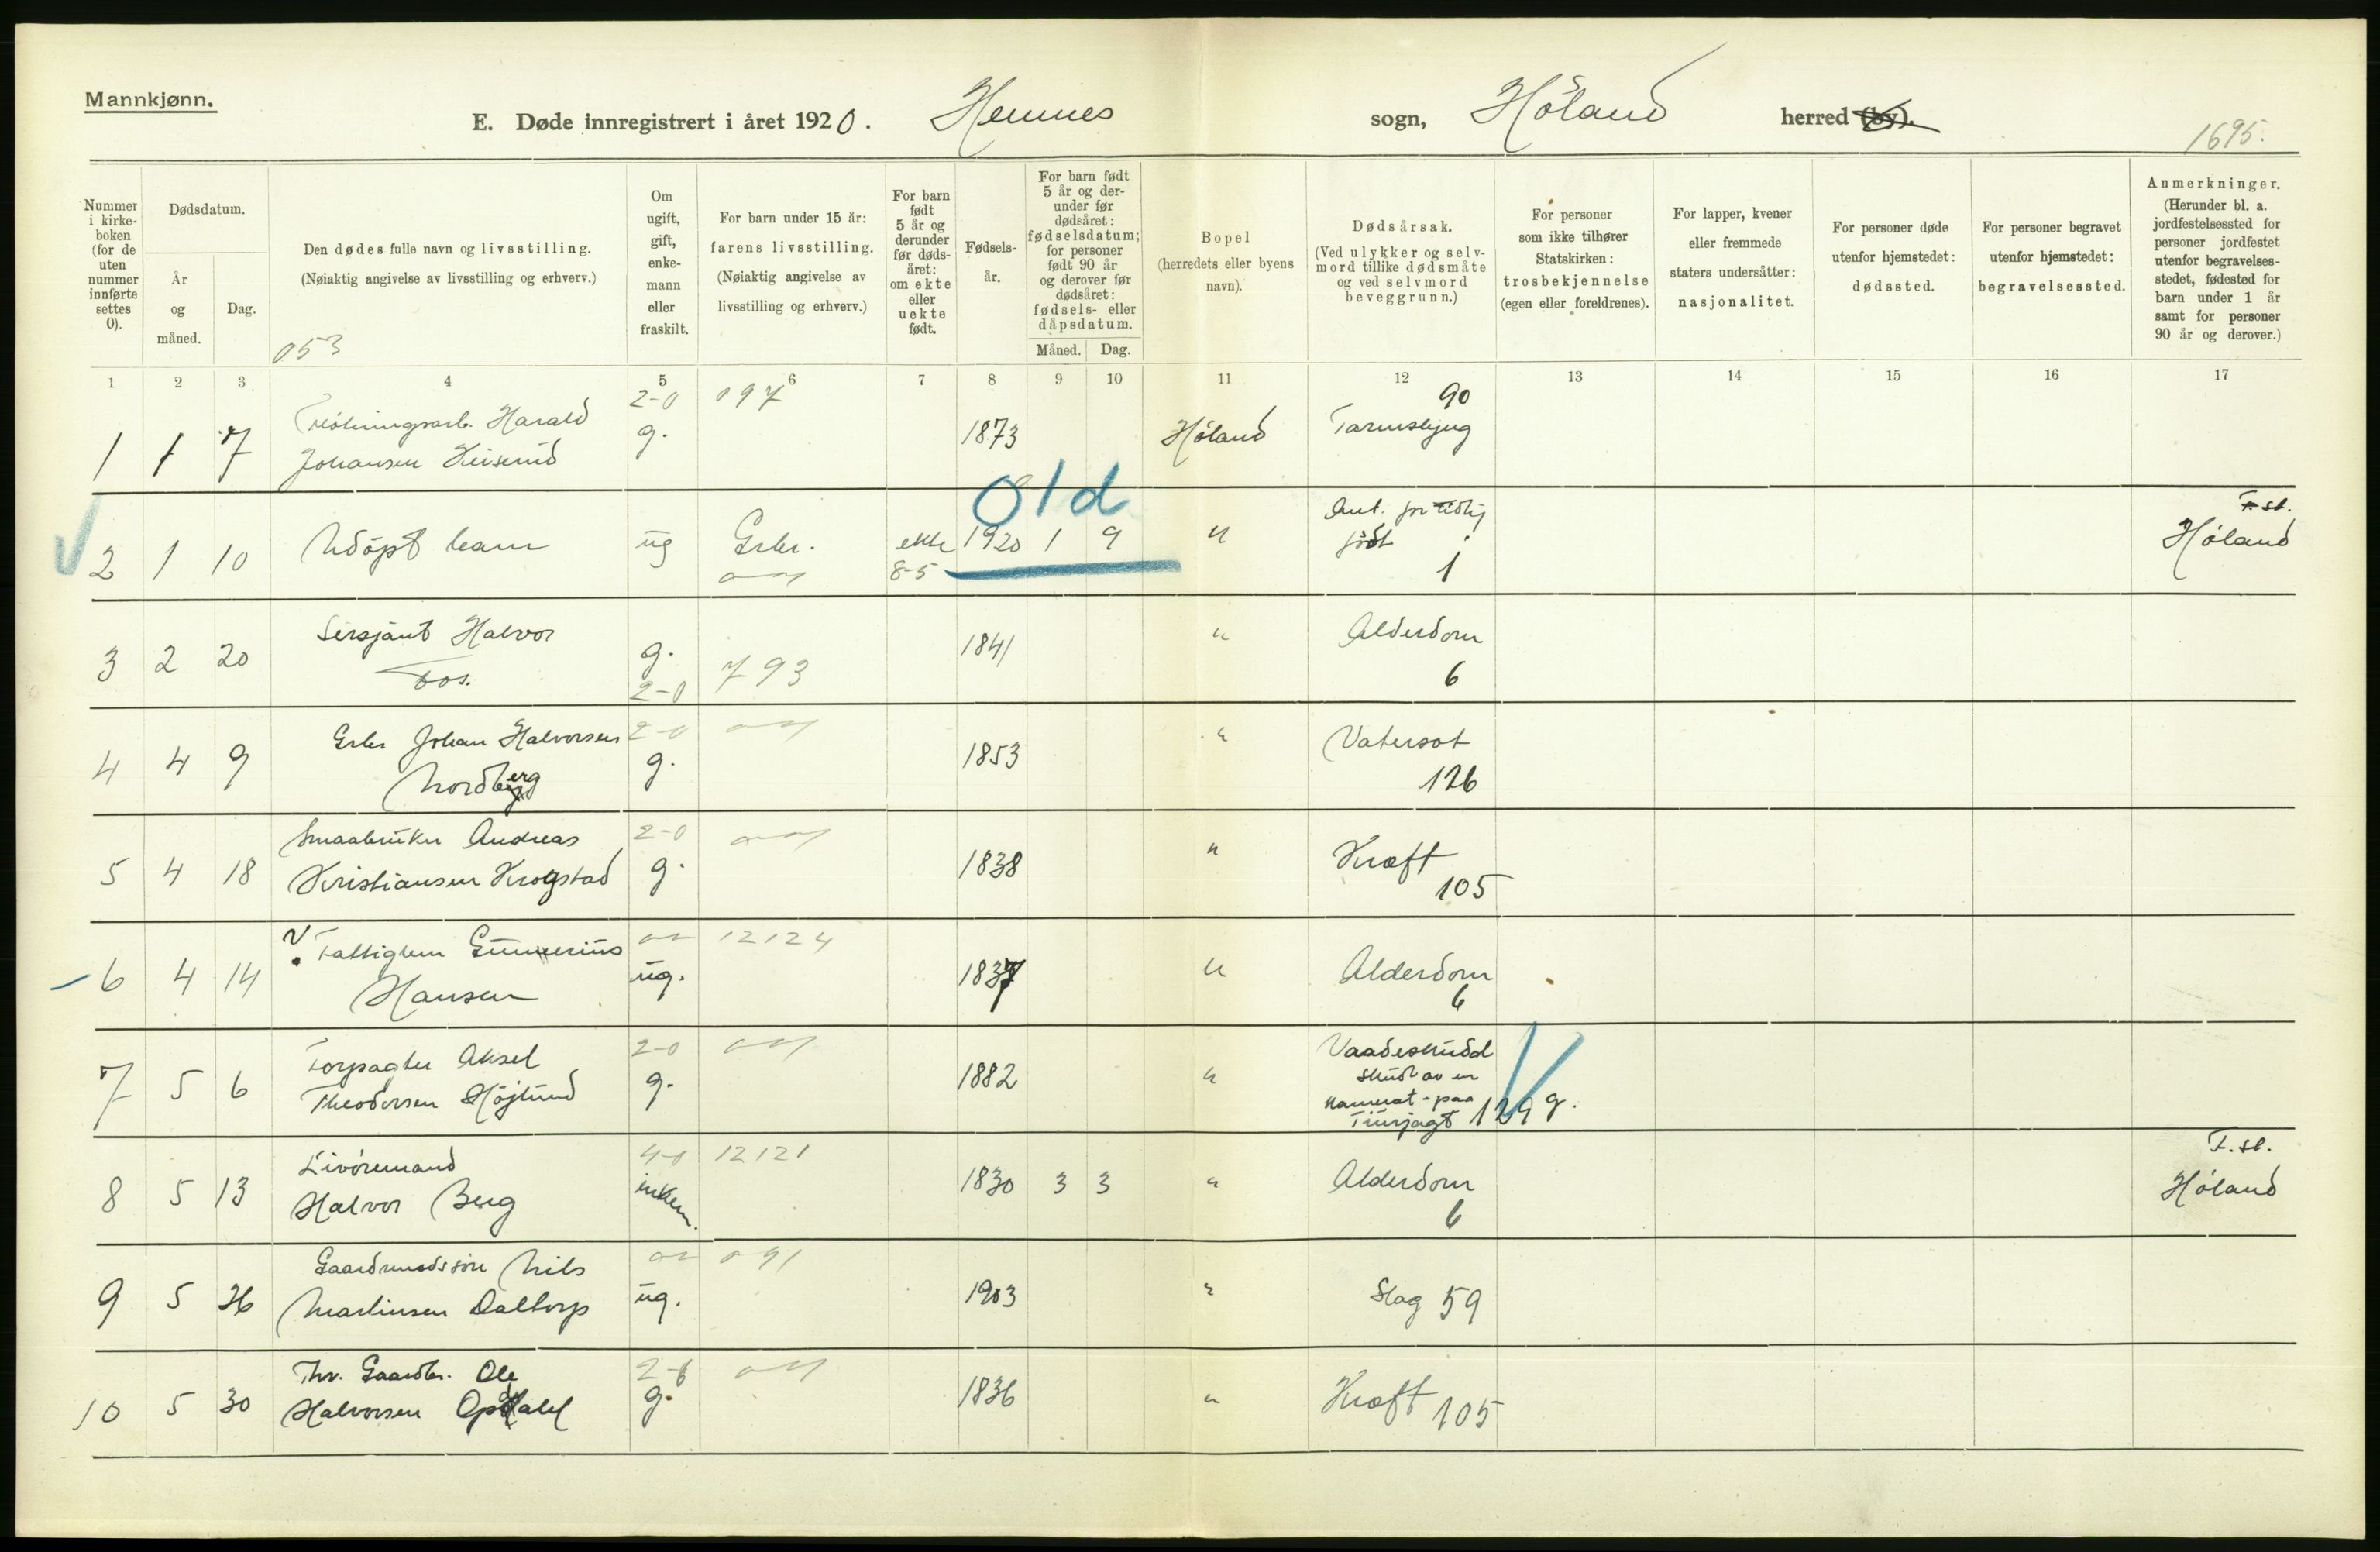 Mannkjønn.
E. Døde innregistrert i året 1920. Hemnes sogn, Høland herred (by).
1695.
Nummer i kirke-boken (for de uten nummer innførte settes 0).
Dødsdatum.
År og måned.
Dag.
Den dødes fulle navn og livsstilling.
(Nøiaktig angivelse av livsstilling og erhverv.)
053
Om ugift, gift, enke-mann eller fraskilt.
For barn under 15 år:
farens livsstilling.
(Nøiaktig angivelse av livsstilling og erhverv.)
For barn født 5 år og derunder før døds-året: om ekte eller uekte født.
Fødsels-år.
For barn født 5 år og der-under før dødsåret: fødselsdatum; for personer født 90 år og derover før dødsåret: fødsels- eller dåpsdatum.
Måned. Dag.
Bopel
(herredets eller byens navn).
Dødsårsak.
(Ved ulykker og selv-mord tillike dødsmåte og ved selvmord beveggrunn.)
For personer som ikke tilhører Statskirken: trosbekjennelse (egen eller foreldrenes).
For lapper, kvener eller fremmede staters undersåtter: nasjonalitet.
For personer døde utenfor hjemstedet: dødssted.
For personer begravet utenfor hjemstedet: begravelsessted.
Anmerkninger.
(Herunder bl. a. jordfestelsessted for personer jordfestet utenfor begravelses-stedet, fødested for barn under 1 år samt for personer 90 år og derover.)
1 2 3 4 5 6 7 8 9 10 11 12 13 14 15 16 17
2-0 097 90
Harald g. 1873 Høland Tarmslyng
1 1 7 Johansen
Old
Ant. for tidlig F.st.
2 1 10 Udøpt barn ug Grbr. ekte 1920 1 9 " født Høland
8-5 1
Sersjant Halvor 1841 " Alderdom
3 2 20 Fos. g. 793 6
2-0
Grbr Johan Halvorsen 2-0 " Vatersot
4 4 9 Nordberg g. 1853 126
Smaabruker Andreas 2-0 "
5 4 18 Kristiansen Krogstad g. 1838 Kræft
105
Fattiglem Gunnerius 12124
6 4 14 Hansen ug. 1837 " Alderdom
6
Forpagter Aksel 2-0 Vaadeskudd
7 5 6 Theodorsen Højlund g. 1882 " skudt av en
kamerat - paa
Tiurjagt 129 g.
Livøremand 4-0 12121 F.st.
8 5 13 Halvor Berg enkem. 1830 3 3 " Alderdom Høland
6
Gaardmandssøn Nils 091
9 5 26 Martinsen Daltorp ug. 1903 " Slag 59
Fhv. Gaardbr. Ole
10 5 30 Halvorsen Opdahl g. 1836 " Kræft 105